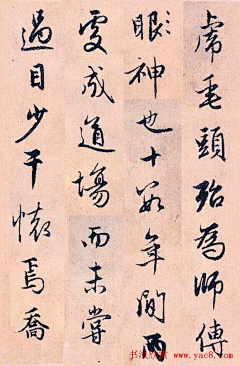 虎毛頭殆為師傅
眼神也十數年間兩
雯成道場而未嘗
過目少干懷焉喬
书法欣赏
www.yac8.com